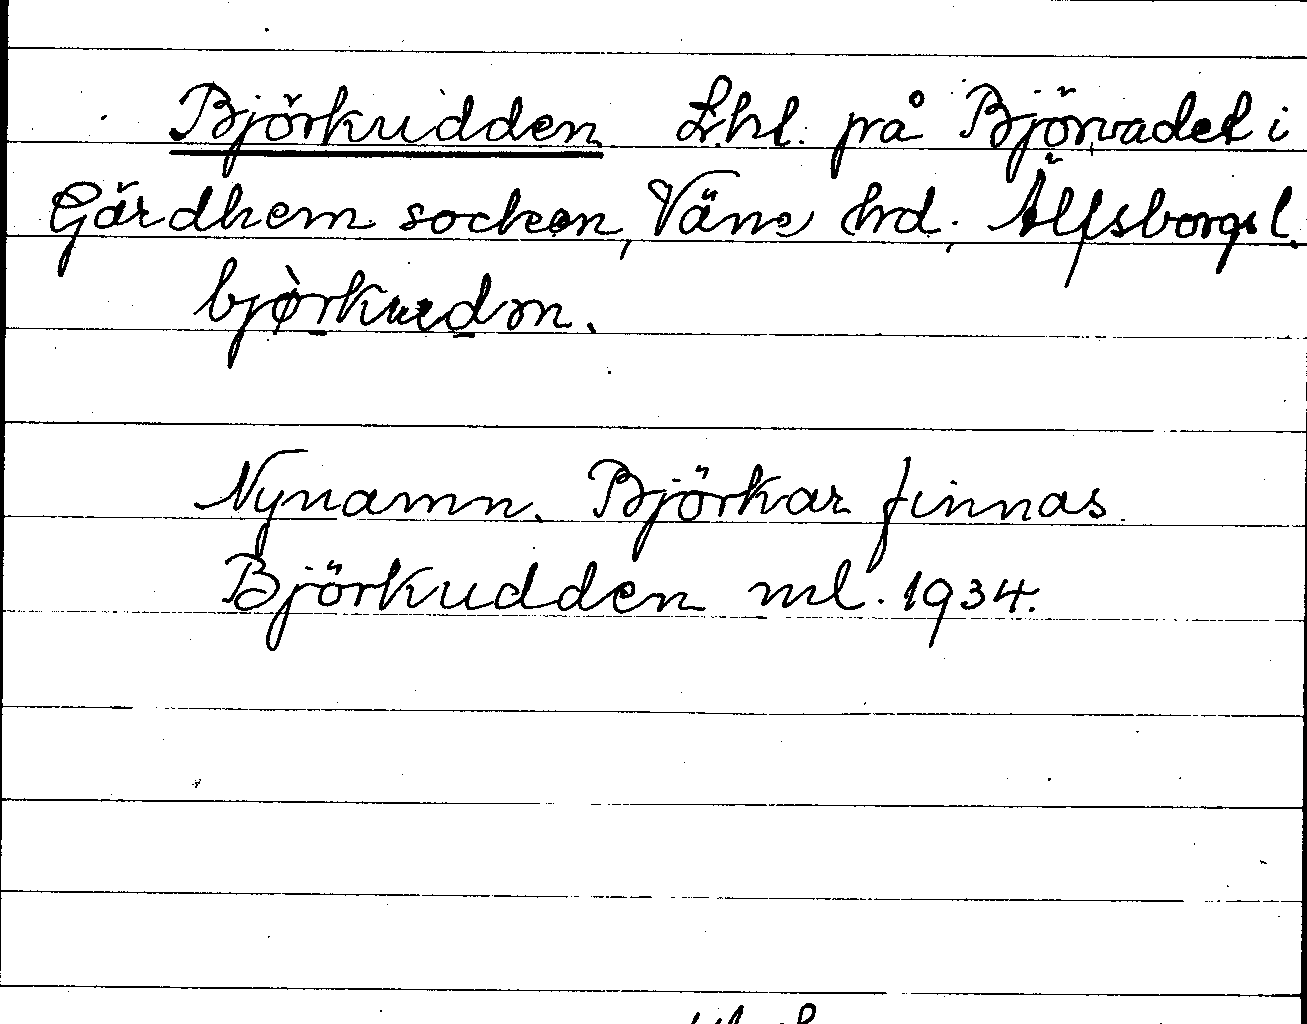 Björkudden Lhl. på Björvadet i
Gärdhem socken, Väne hd. Älfsborgs l.
bjòrkudn.
Nynamn. Björkar finnas
Björkudden ml. 1934.